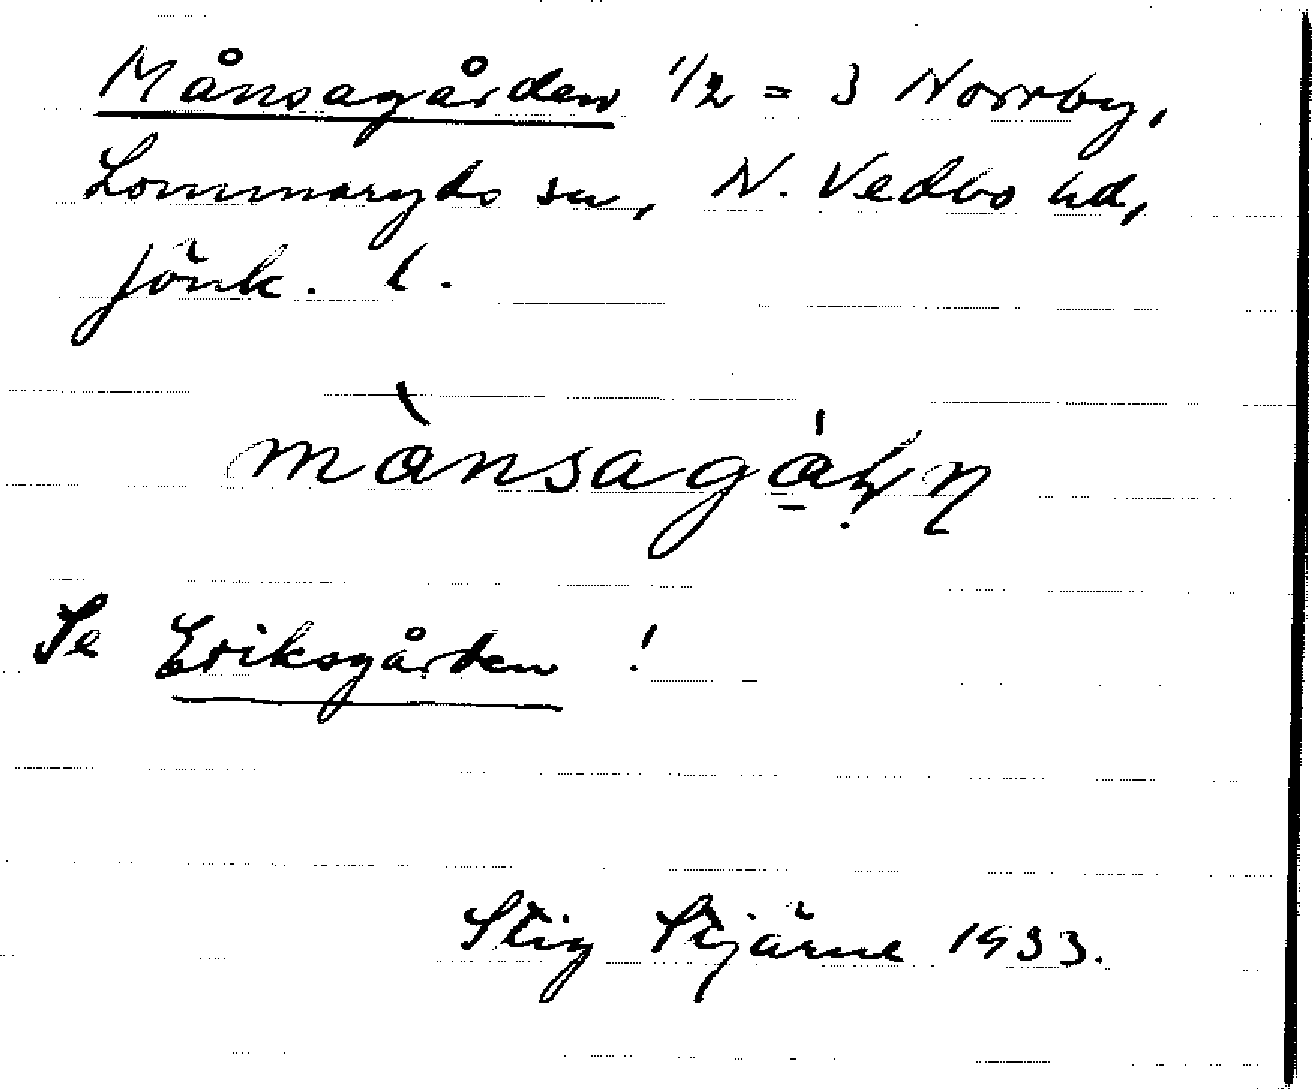 Månsagården 1/2 = 3 Norrby,
Lommaryds sn, N. Vedbo hd,
Jönk. l.
Se Eriksgården !
Stig Stjärne 1933.